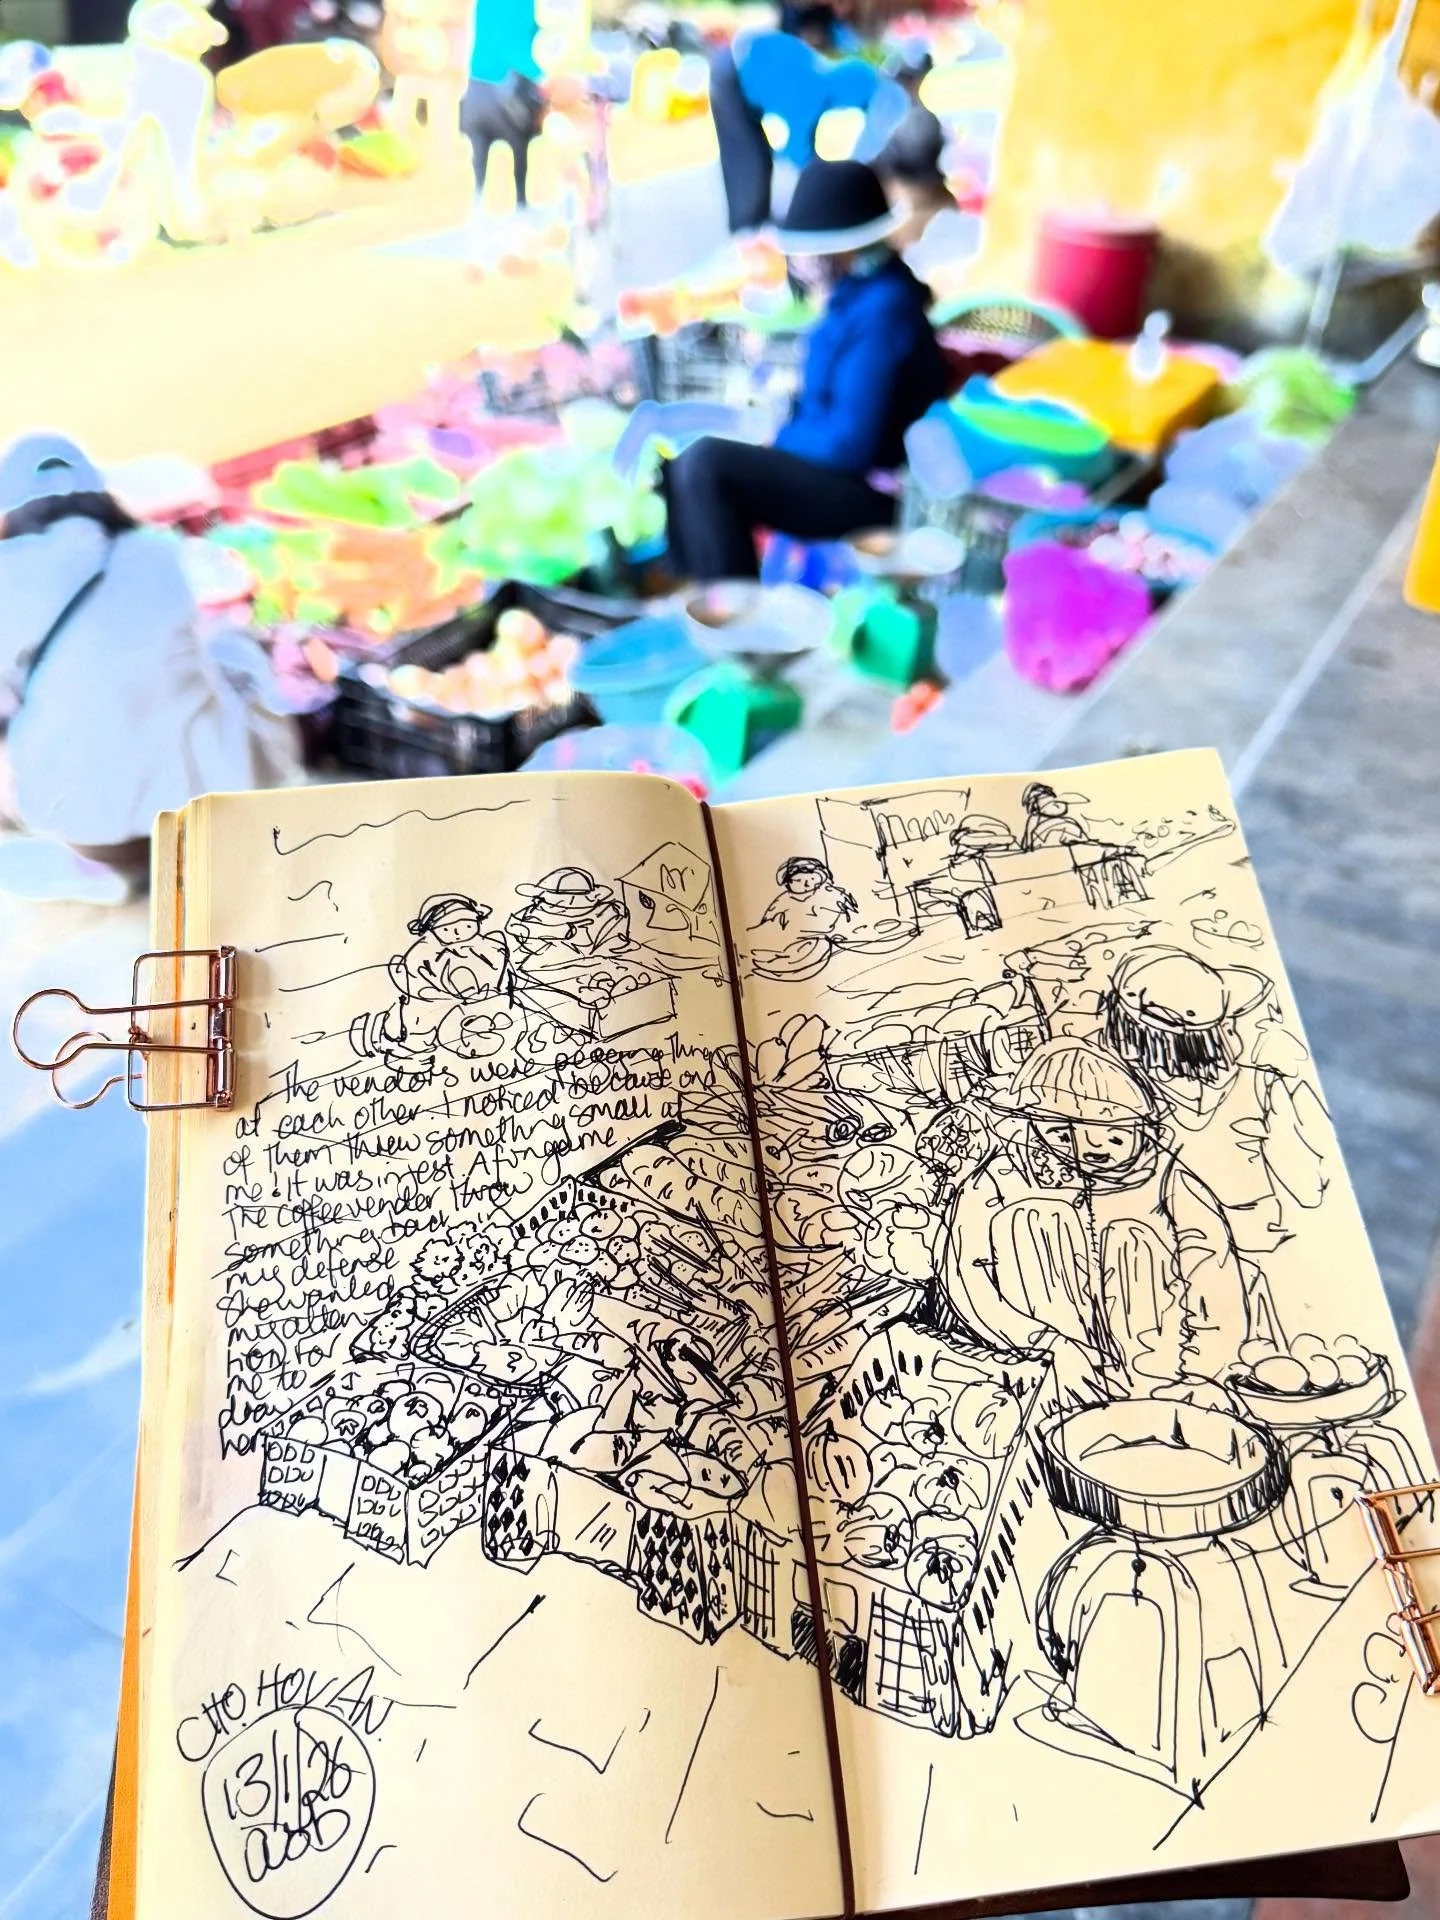 The vendors were pegging things
at each other. I noticed because one
of them threw something small at
me! It was in jest. A fun game.
The coffee vender threw
something back in
my defense
She wanted
my atten
tion for
me to
draw
her
CHO. HOI AN
13/1/26